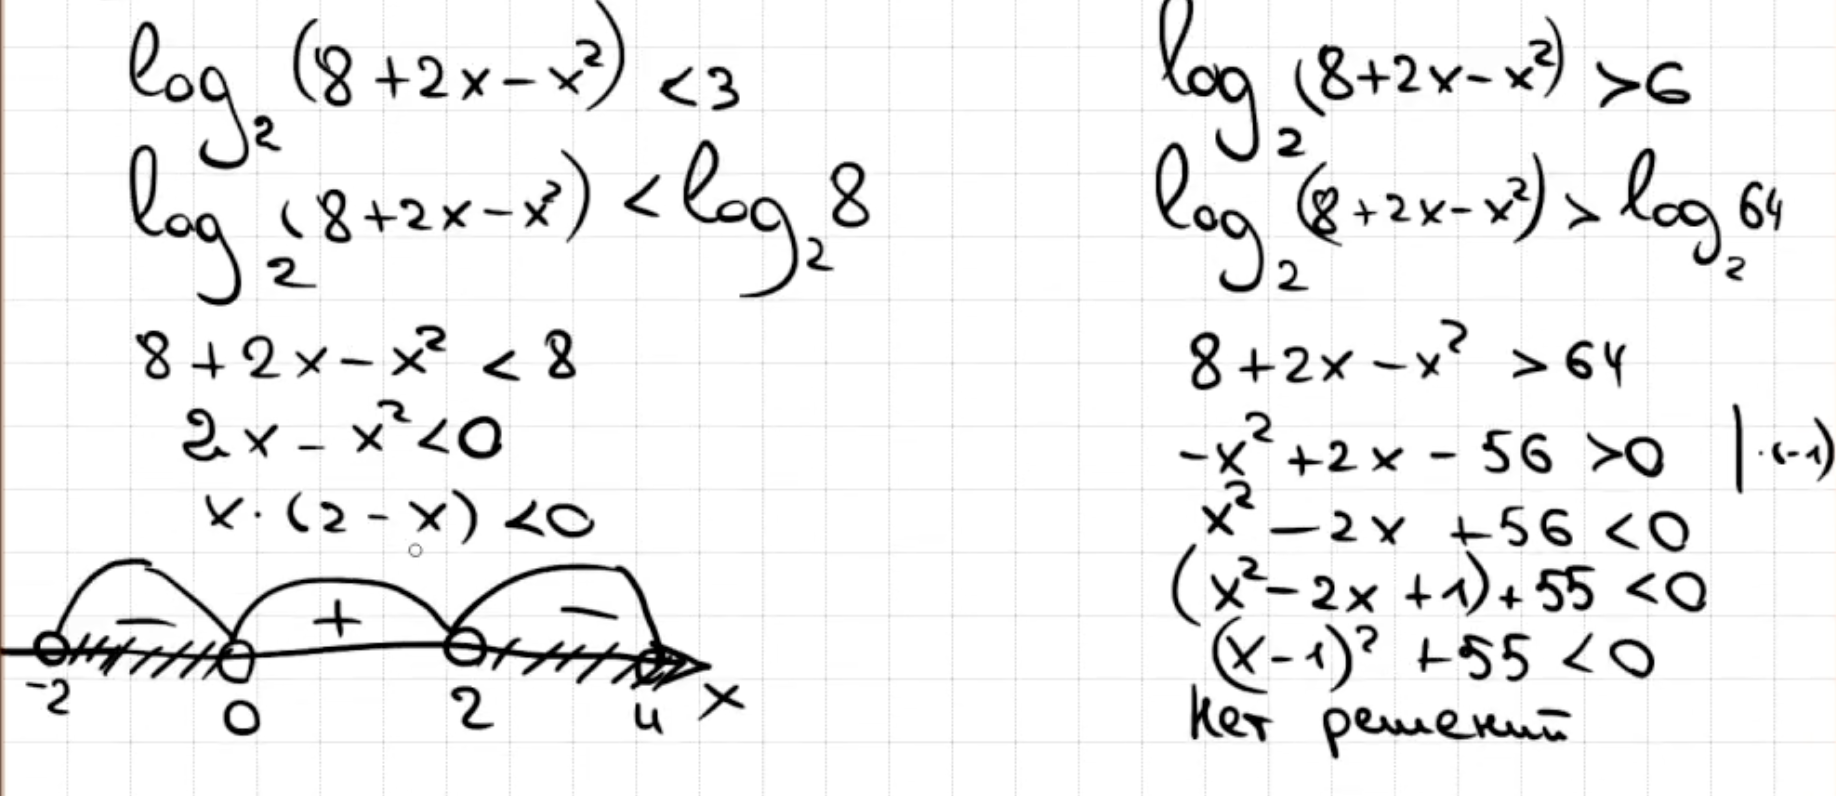 log₂(8+2x-x²) <3
log₂(8+2x-x²) < log₂8
8+2x-x² < 8
2x-x²<0
x·(2-x) <0
- + -
-2 0 2 4 x
log₂(8+2x-x²) >6
log₂(8+2x-x²) > log₂64
8+2x-x² >64
-x²+2x-56 >0 |·(-1)
x²-2x+56 <0
(x²-2x+1)+55 <0
(x-1)²+55 <0
Нет решений